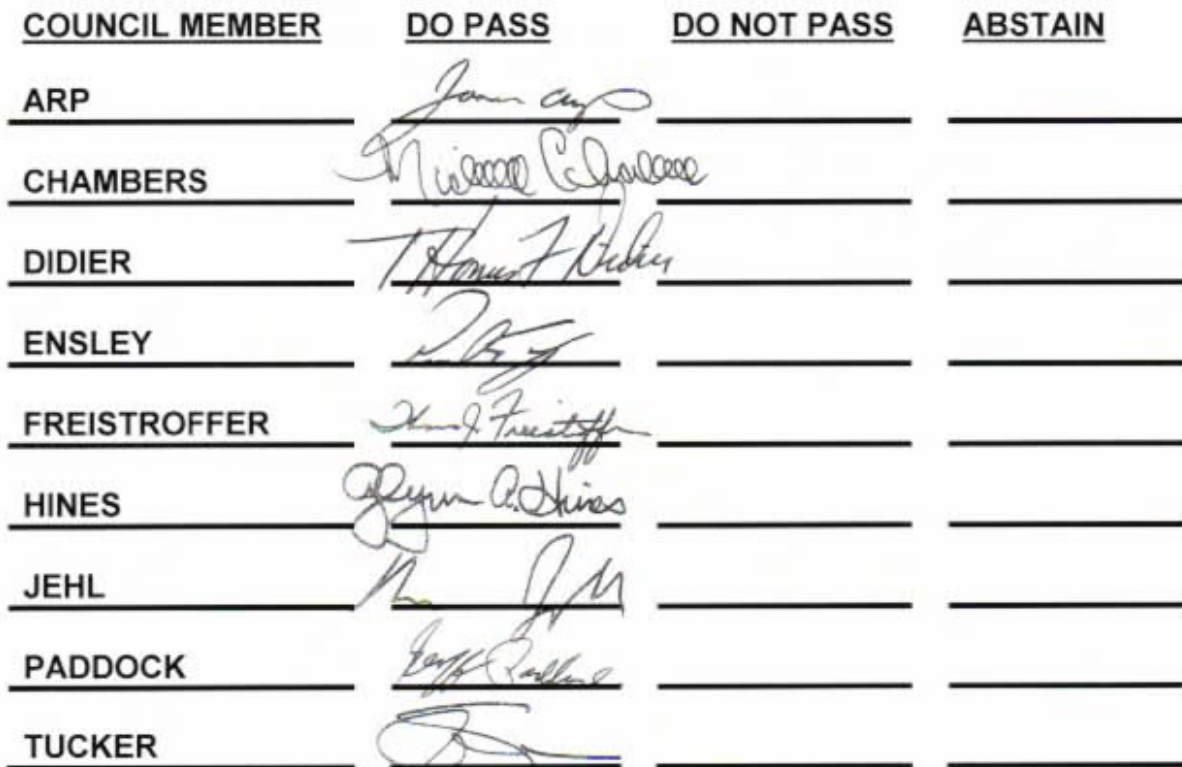 COUNCIL MEMBER DO PASS DO NOT PASS ABSTAIN
ARP
CHAMBERS
DIDIER Thomas F Didier
ENSLEY
FREISTROFFER Freistroffer
HINES Glynn A. Hines
JEHL
PADDOCK Geoff Paddock
TUCKER